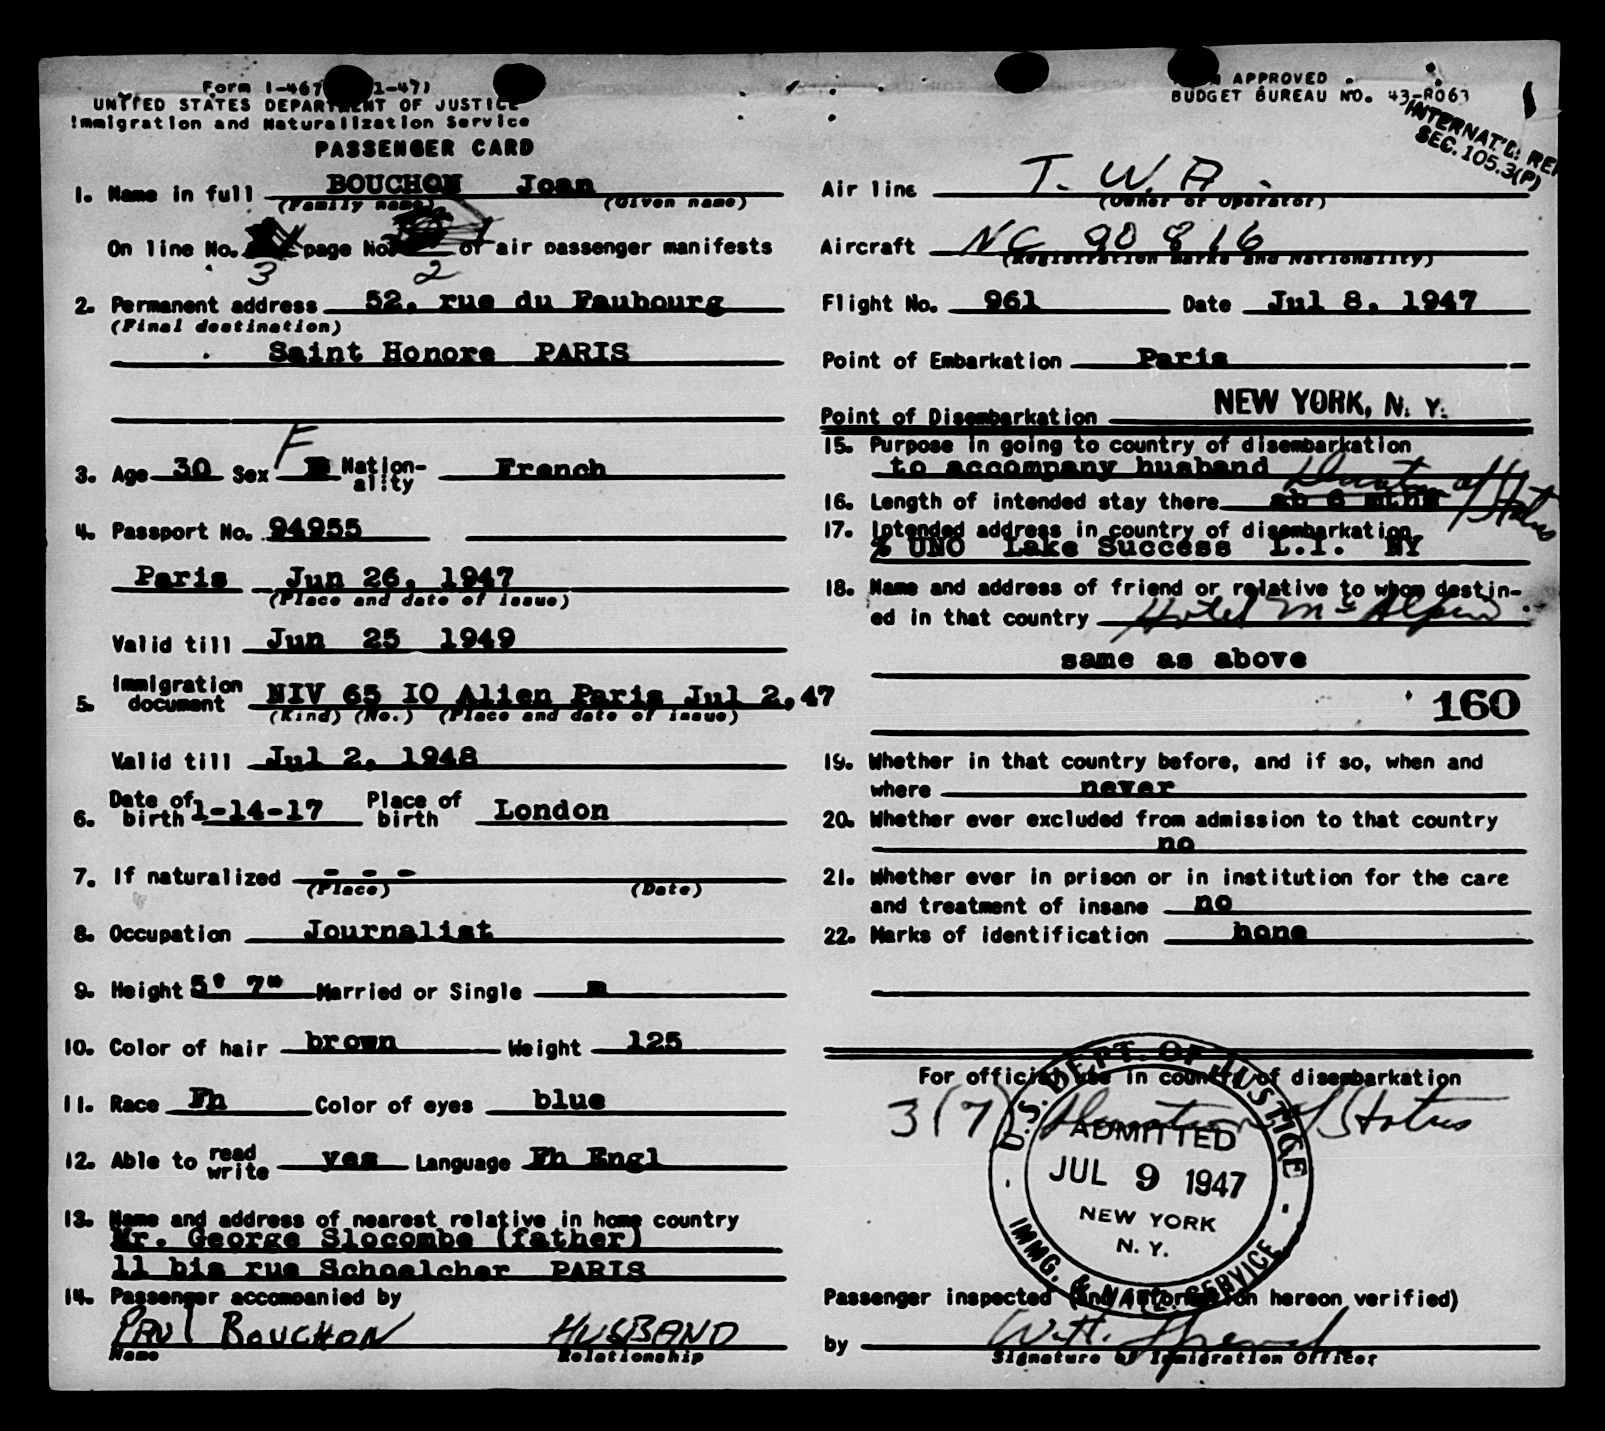 Form I-467 1-47)
UNITED STATES DEPARTMENT OF JUSTICE
Immigration and Naturalization Service
PASSENGER CARD
1. Name in full BOUCHON Joan
(Family name) (Given name)
On line No. page No. of air passenger manifests
3 2
2. Permanent address 52, rue du Faubourg
(Final destination)
Saint Honore PARIS
F
3. Age 30 Sex Nation-ality French
4. Passport No. 94955
Paris Jun 26, 1947
(Place and date of issue)
Valid till Jun 25 1949
5. Immigration document NIV 65 IO Alien Paris Jul 2,47
(Kind) (No.) (Place and date of issue)
Valid till Jul 2, 1948
6. Date of birth 1-14-17 Place of birth London
7. If naturalized - - -
(Place) (Date)
8. Occupation Journalist
9. Height 5' 7" Married or Single m
10. Color of hair brown Weight 125
11. Race Fh Color of eyes blue
12. Able to read write yes Language Fh Engl
13. Name and address of nearest relative in home country
Mr. George Slocombe (father)
11 bis rue Schoelcher PARIS
14. Passenger accompanied by
PAUL BOUCHON HUSBAND
Name Relationship
FORM APPROVED
BUDGET BUREAU NO. 43-R063
INTERNAT'L. REL
SEC. 105.3(P)
Air line T. W. A.
(Owner or Operator)
Aircraft NC 90816
(Registration marks and Nationality)
Flight No. 961 Date Jul 8, 1947
Point of Embarkation Paris
Point of Disembarkation NEW YORK, N. Y.
15. Purpose in going to country of disembarkation
to accompany husband
16. Length of intended stay there ab 6 mths Duration of Status
17. Intended address in country of disembarkation
% UNO Lake Success L.I. NY
18. Name and address of friend or relative to whom destin-
ed in that country Hotel McAlpin
same as above
160
19. Whether in that country before, and if so, when and
where never
20. Whether ever excluded from admission to that country
no
21. Whether ever in prison or in institution for the care
and treatment of insane no
22. Marks of identification none
For official use in country of disembarkation
3(7) Duration of Status
U.S. DEPT. OF JUSTICE
ADMITTED
JUL 9 1947
NEW YORK
N. Y.
IMMG. & NATZ. SERVICE
Passenger inspected (and information hereon verified)
by W.H.
Signature of Immigration Officer